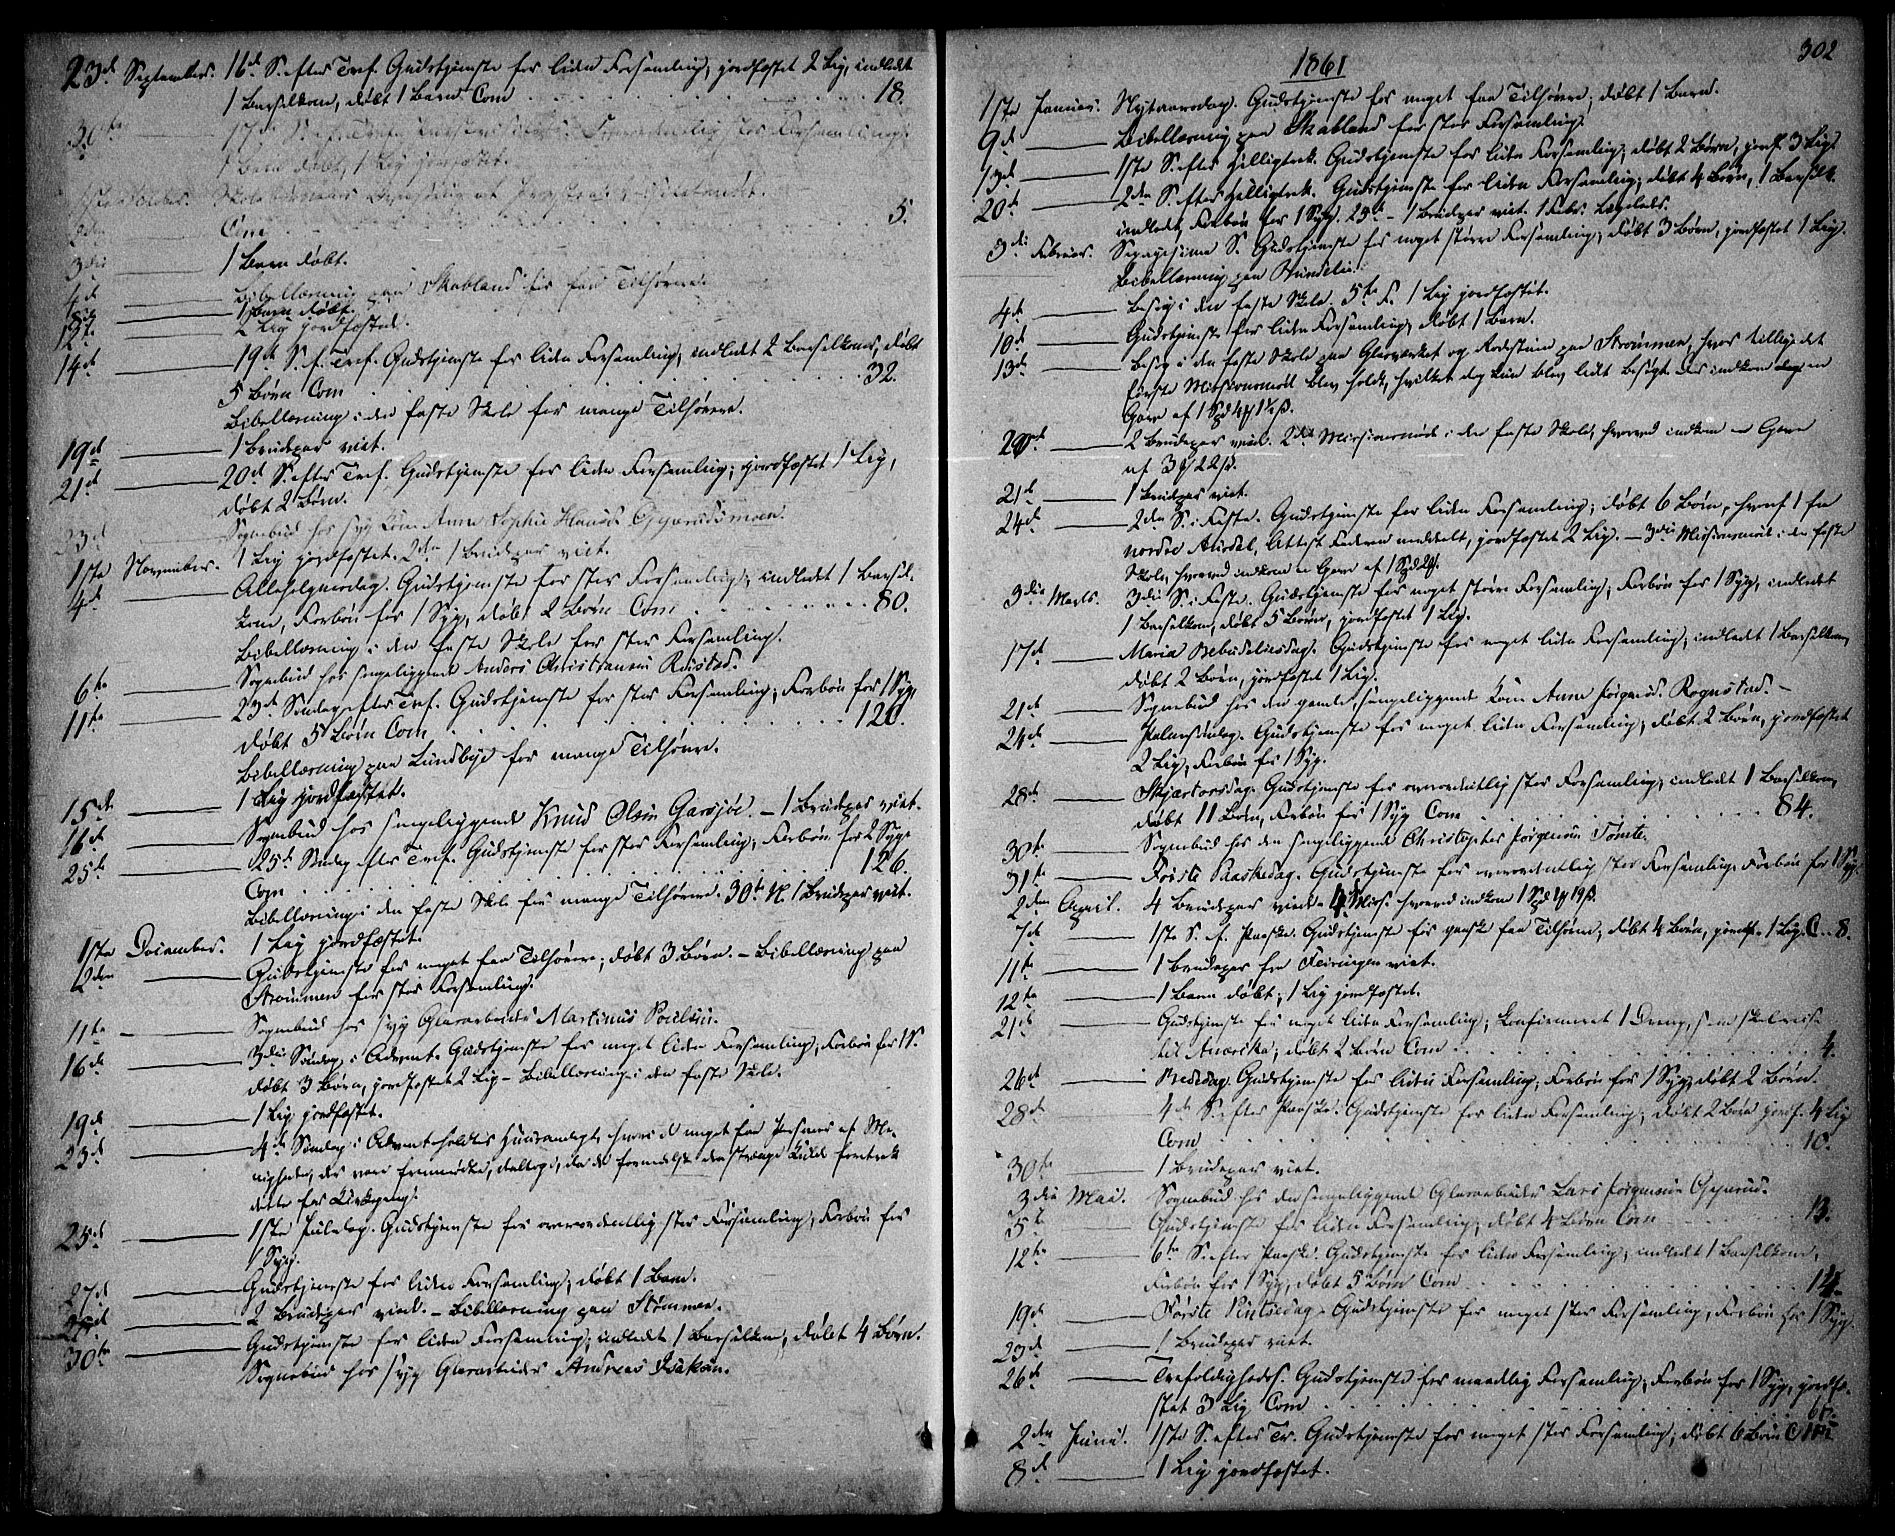 23d September. 16d S. efter Tref. Gudstjeneste for liden Forsamling, jordfæstet 2 Lig, indledt
1 Barselkone, døbt 1 Barn. Com . . . 18.
30te 17de S. e. Tref. Forsamling.
1 Barn døbt, 1 Lig jordfæstet.
1ste October.
2den Com . . . 5.
3die 1 Barn døbt.
4d Bibellæsning paa Skabland for faa Tilhørere.
1 Barn døbt.
12t. 2 Lig jordfæstet.
14d 19d S. e. Tref. Gudstjeneste for liden Forsamling, indledt 2 Barselkoner, døbt
5 Børn Com . . . 32.
Bibellæsning i den faste Skole for mange Tilhørere.
19d 1 Brudepar viet.
21d 20d S. efter Tref. Gudstjeneste for liden Forsamling; jordfæstet 1 Lig,
døbt 2 Børn.
23d Sognebud hos syg Kone Anne Sophie
1ste November. 1 Lig jordfæstet. 2den 1 Brudepar viet.
4d Allehelgensdag. Gudstjeneste for stor Forsamling, indledt 1 Barsel-
kone, Forbøn for 1 Syg, døbt 2 Børn Com . . . 80.
Bibellæsning i den faste Skole for stor Forsamling.
6te Sognebud hos sengeliggende Anders Christiansen Rustad.
11te 23d Søndag efter Tref. Gudstjeneste for stor Forsamling; Forbøn for 1 Syg,
døbt 5 Børn Com . . . 120.
Bibellæsning paa Lundbye for mange Tilhørere.
15d 1 Lig jordfæstet.
16d Sognebud hos sengeliggende Knud Olsen Garsjøe. – 1 Brudepar viet.
25d 25d Søndag efter Tref. Gudstjeneste for stor Forsamling, Forbøn for 2 Syge
Com . . . 126.
Bibellæsning i den faste Skole for mange Tilhørere. 30te N. 1 Brudepar viet.
1ste December. 1 Lig jordfæstet.
2den Gudstjeneste for meget faa Tilhørere; døbt 3 Børn. – Bibellæsning paa
Strømmen for stor Forsamling.
11te Sognebud hos syg Glasarbeider Martinus Poulsen.
16d 3die Søndag i Advent. Gudstjeneste for meget liden Forsamling, Forbøn for 1 S.
døbt 3 Børn, jordfæstet 2 Lig – Bibellæsning i den faste Skole.
19d 1 Lig jordfæstet.
23d 4de Søndag i Advent holdtes Huusandagt, hvori de meget faa Personer af Me-
nigheden, der vare fremmødte, deeltoge, da de formedelst den strænge Kulde foretrak
dette for Kirkegang.
25d 1ste Juledag. Gudstjeneste for overordentlig stor Forsamling, Forbøn for
1 Syg.
27d Gudstjeneste for liden Forsamling, døbt 1 Barn.
2 Brudepar viet. – Bibellæsning paa Strømmen.
30te Gudstjeneste for liden Forsamling; indledt 1 Barselkone, døbt 4 Børn.
Sognebud hos syg Glasarbeider Andreas Isaksen.
302
1861
1ste Januar. Nytaarsdag. Gudstjeneste for meget faa Tilhørere; døbt 1 Barn.
9d Bibellæsning paa Skabland for stor Forsamling.
13d 1ste S. efter Helligtrek. Gudstjeneste for liden Forsamling, døbt 2 Børn, jordf. 3 Lig.
20d 2den S. efter Helligtrek. Gudstjeneste for liden Forsamling; døbt 4 Børn, 1 Barselk.
indledt, Forbøn for 1 Syg. 25d – 1 Brudepar viet. 1 Febr.
3die Februar. Sexagesima S. Gudstjeneste for noget større Forsamling, døbt 3 Børn, jordfæstet 1 Lig.
Bibellæsning paa
4d Besøg i den faste Skole. 5te F. 1 Lig jordfæstet.
10d Gudstjeneste for liden Forsamling, døbt 1 Barn.
13d Besøg i den faste Skole paa Glasværket og paa Strømmen, hvor tillige det
første Missionsmøde blev holdt, hvilket dog kun blev lidt besøgt. Der indkom en
Gave af 1 Spd
20d 2 Brudepar viet. 2det Missionsmøde i den faste Skole, hvorved indkom en Gave
af 3 22 ß.
21d 1 Brudepar viet.
24d 2den S. i Faste. Gudstjeneste for liden Forsamling; døbt 6 Børn, hvoraf 1 fra
nordre Aurdal, Attest Faderen meddelt, jordfæstet 2 Lig. – 3die Missionsmøde i den faste
Skole, hvorved indkom en Gave af 1 Spd
3die Marts. 3die S. i Faste. Gudstjeneste for noget større Forsamling, Forbøn for 1 Syg, indledt
1 Barselkone, døbt 5 Børn, jordfæstet 1 Lig.
17d Maria Bebudelsesdag. Gudstjeneste for meget liden Forsamling, indledt 1 Barselkone,
døbt 2 Børn, jordfæstet 1 Lig.
21d Sognebud hos den gamle, sengeliggende Kone Anne Jørgensd. Rognstad. –
24d Palmesøndag. Gudstjeneste for meget liden Forsamling, døbt 2 Børn, jordfæstet
2 Lig, Forbøn for 1 Syg.
28d Skjærtorsdag. Gudstjeneste for overordentlig stor Forsamling, indledt 1 Barselkone,
døbt 11 Børn, Forbøn for 1 Syg Com . . . 84.
30te Sognebud hos den sengeliggende Christopher Jørgensen
31te Første Paaskedag. Gudstjeneste for overordentlig stor Forsamling. Forbøn for 1 Syg.
2den April. 4 Brudepar viet. 4 Miss. hvorved indkom 1 Spd 19 ß.
7d 1ste S. e. Paaske. Gudstjeneste for ganske faa Tilhørere, døbt 4 Børn, jordf. 1 Lig. C . . 8.
11te 1 Brudepar fra Feiringen viet.
12te 1 Barn døbt; 1 Lig jordfæstet.
21d Gudstjeneste for meget liden Forsamling; Konfirmeret 1 Dreng, som skal reise
til Amerika; døbt 2 Børn Com . . . 4.
26d Bededag. Gudstjeneste for liden Forsamling, Forbøn for 1 Syg, døbt 2 Børn.
28d 4de S. efter Paaske. Gudstjeneste for liden Forsamling, døbt 2 Børn jordf. 4 Lig
Com . . . 10.
30te 1 Brudepar viet.
3die Mai. Sognebud hos den sengeliggende Glasarbeider Lars Jørgensen
5t Gudstjeneste for liden Forsamling, døbt 4 Børn Com . . . 13.
12te 6te S. efter Paaske. Gudstjeneste for liden Forsamling, indledt 1 Barselkone,
Forbøn for 1 Syg, døbt 5 Børn Com . . . 14.
19d Første Pintsedag. Gudstjeneste for meget stor Forsamling, Forbøn for 1 Syg.
23d 1 Brudepar viet.
26d Trefoldigheds. Gudstjeneste for maadelig Forsamling, Forbøn for 1 Syg, jordfæ-
stet 3 Lig Com . . .
2den Juni. 1ste S. efter Tr. Gudstjeneste for meget stor Forsamling, døbt 6 Børn
8d 1 Lig jordfæstet.